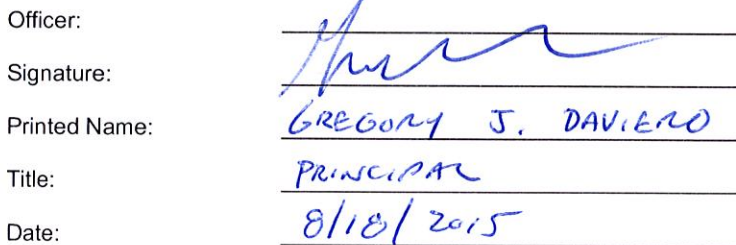 Officer:
Signature:
Printed Name: GREGORY J. DAVIERO
Title: PRINCIPAL
Date: 8/18/2015